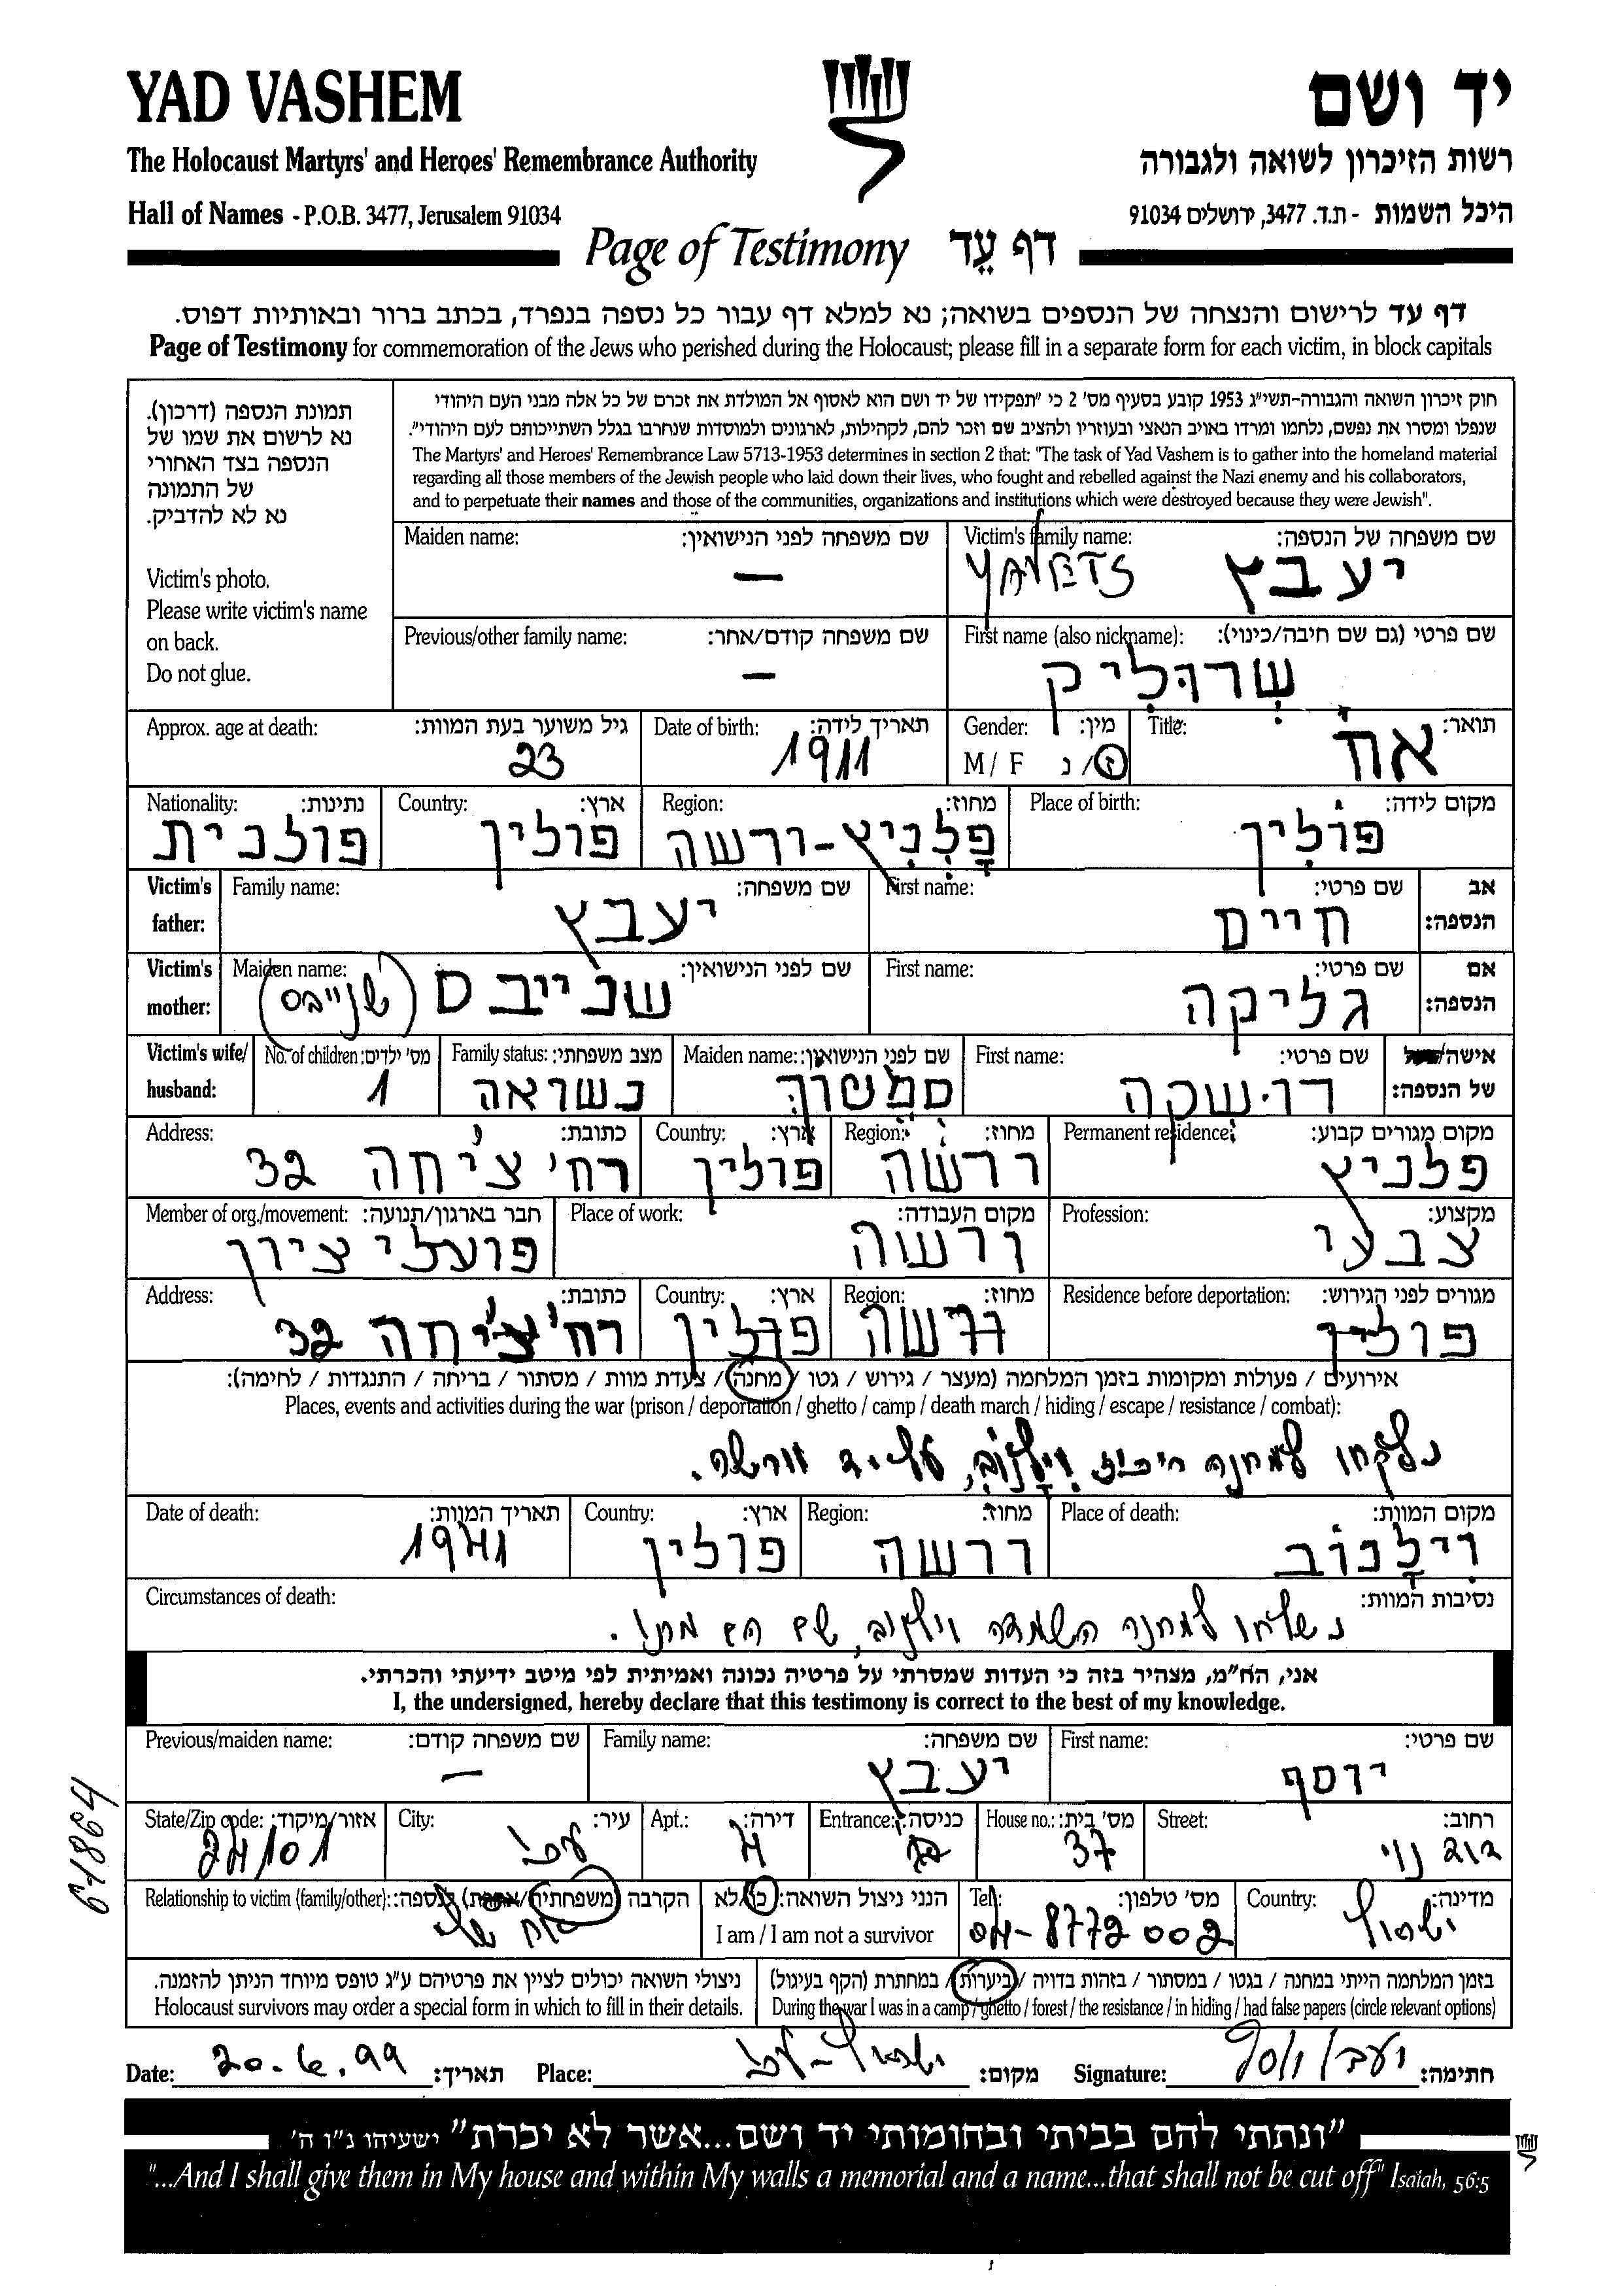 YAD VASHEM
יד ושם
The Holocaust Martyrs' and Heroes' Remembrance Authority
רשות הזיכרון לשואה ולגבורה
Hall of Names - P.O.B. 3477, Jerusalem 91034
היכל השמות - ת.ד. 3477, ירושלים 91034
Page of Testimony דף עֵד
דף עד לרישום והנצחה של הנספים בשואה; נא למלא דף עבור כל נספה בנפרד, בכתב ברור ובאותיות דפוס.
Page of Testimony for commemoration of the Jews who perished during the Holocaust; please fill in a separate form for each victim, in block capitals
תמונת הנספה (דרכון).
נא לרשום את שמו של
הנספה בצד האחורי
של התמונה
נא לא להדביק.
Victim's photo.
Please write victim's name
on back.
Do not glue.
חוק זיכרון השואה והגבורה-תשי"ג 1953 קובע בסעיף מס' 2 כי "תפקידו של יד ושם הוא לאסוף אל המולדת את זכרם של כל אלה מבני העם היהודי
שנפלו ומסרו את נפשם, נלחמו ומרדו באויב הנאצי ובעוזריו ולהציב שם וזכר להם, לקהילות, לארגונים ולמוסדות שנחרבו בגלל השתייכותם לעם היהודי".
The Martyrs' and Heroes' Remembrance Law 5713-1953 determines in section 2 that: "The task of Yad Vashem is to gather into the homeland material
regarding all those members of the Jewish people who laid down their lives, who fought and rebelled against the Nazi enemy and his collaborators,
and to perpetuate their names and those of the communities, organizations and institutions which were destroyed because they were Jewish".
Victim's family name: שם משפחה של הנספה:
YAVETS יעבץ
Maiden name: שם משפחה לפני הנישואין:
—
First name (also nickname): שם פרטי (גם שם חיבה/כינוי):
שרוליק
Previous/other family name: שם משפחה קודם/אחר:
—
Title: תואר:
אח
Gender: מין:
M / F ז/נ
Date of birth: תאריך לידה:
1911
Approx. age at death: גיל משוער בעת המוות:
23
Place of birth: מקום לידה:
פולין
Region: מחוז:
פלניץ-ורשה
Country: ארץ:
פולין
Nationality: נתינות:
פולנית
Victim's father: אב הנספה:
First name: שם פרטי:
חיים
Family name: שם משפחה:
יעבץ
Victim's mother: אם הנספה:
First name: שם פרטי:
גליקה
Maiden name: שם לפני הנישואין:
שנייבס (שנייבס)
Victim's wife/husband: אישה/ של הנספה:
First name: שם פרטי:
דוישקה
Maiden name: שם לפני הנישואין:
Family status: מצב משפחתי:
נשוראה
No. of children: מס' ילדים:
1
Permanent residence: מקום מגורים קבוע:
פלניץ
Region: מחוז:
ורשה
Country: ארץ:
פולין
Address: כתובת:
רח' ציחה 32
Profession: מקצוע:
צבעי
Place of work: מקום העבודה:
ורשה
Member of org./movement: חבר בארגון/תנועה:
פועלי ציון
Residence before deportation: מגורים לפני הגירוש:
פולין
Region: מחוז:
ורשה
Country: ארץ:
פולין
Address: כתובת:
רח' ציחה 32
אירועים / פעולות ומקומות בזמן המלחמה (מעצר / גירוש / גטו / מחנה / צעדת מוות / מסתור / בריחה / התנגדות / לחימה):
Places, events and activities during the war (prison / deportation / ghetto / camp / death march / hiding / escape / resistance / combat):
נלקחו למחנה ריכוז וילנוב, על-יד וורשה.
Place of death: מקום המוות:
וילנוב
Region: מחוז:
ורשה
Country: ארץ:
פולין
Date of death: תאריך המוות:
1941
Circumstances of death: נסיבות המוות:
נשלחו למחנה השמדה וילנוב, שם הם מתו.
אני, הח"מ, מצהיר בזה כי העדות שמסרתי על פרטיה נכונה ואמיתית לפי מיטב ידיעתי והכרתי.
I, the undersigned, hereby declare that this testimony is correct to the best of my knowledge.
First name: שם פרטי:
יוסף
Family name: שם משפחה:
יעבץ
Previous/maiden name: שם משפחה קודם:
—
Street: רחוב:
דוד נוי
House no.: מס' בית:
37
Entrance: כניסה:
Apt.: דירה:
4
City: עיר:
עכו
State/Zip code: אזור/מיקוד:
24101
Country: מדינה:
ישראל
Tel: מס' טלפון:
04-8772002
הנני ניצול השואה: כן/לא
I am / I am not a survivor
Relationship to victim (family/other): הקרבה (משפחתית/אחרת) לנספה:
אח שלי
בזמן המלחמה הייתי במחנה / בגטו / במסתור / בזהות בדויה / ביערות / במחתרת (הקף בעיגול)
During the war I was in a camp / ghetto / forest / the resistance / in hiding / had false papers (circle relevant options)
ניצולי השואה יכולים לציין את פרטיהם ע"ג טופס מיוחד הניתן להזמנה.
Holocaust survivors may order a special form in which to fill in their details.
Date: 20.6.99 תאריך: Place: ישראל-עכו מקום: Signature: יעבץ יוסף חתימה:
"ונתתי להם בביתי ובחומותי יד ושם...אשר לא יכרת" ישעיהו נ"ו ה'
"...And I shall give them in My house and within My walls a memorial and a name...that shall not be cut off" Isaiah, 56:5
61864